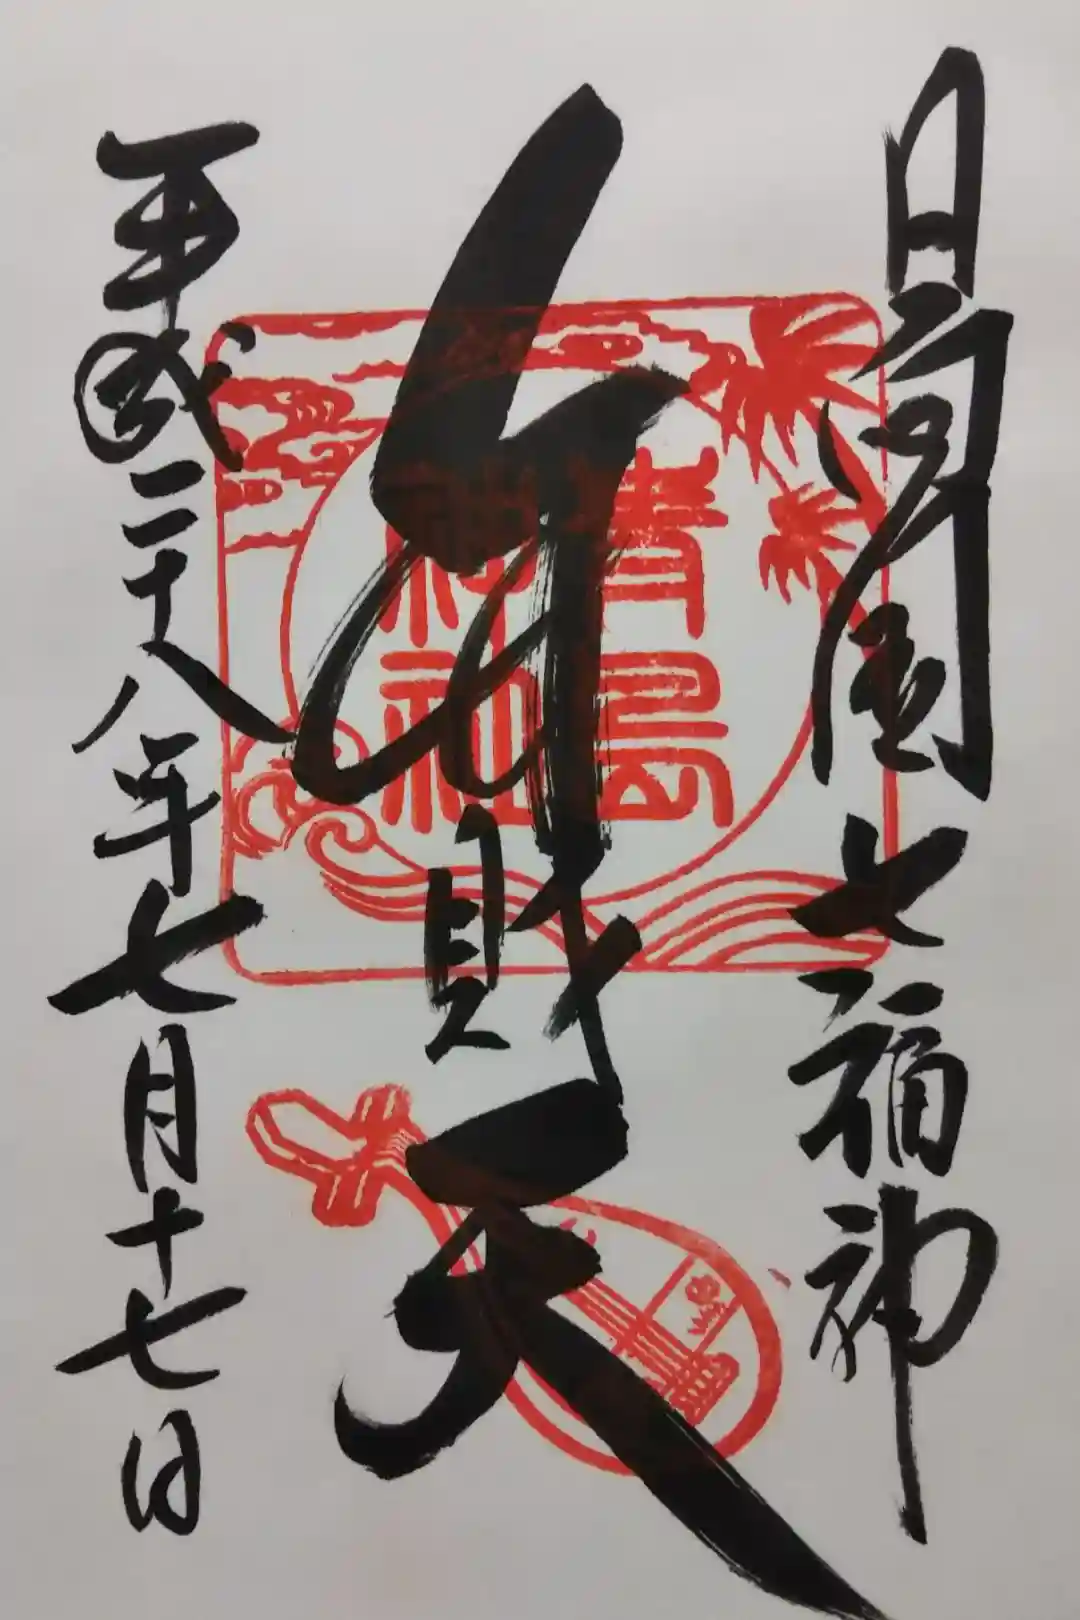 日向国七福神
弁財天
平成二十八年七月十七日
青島
神社